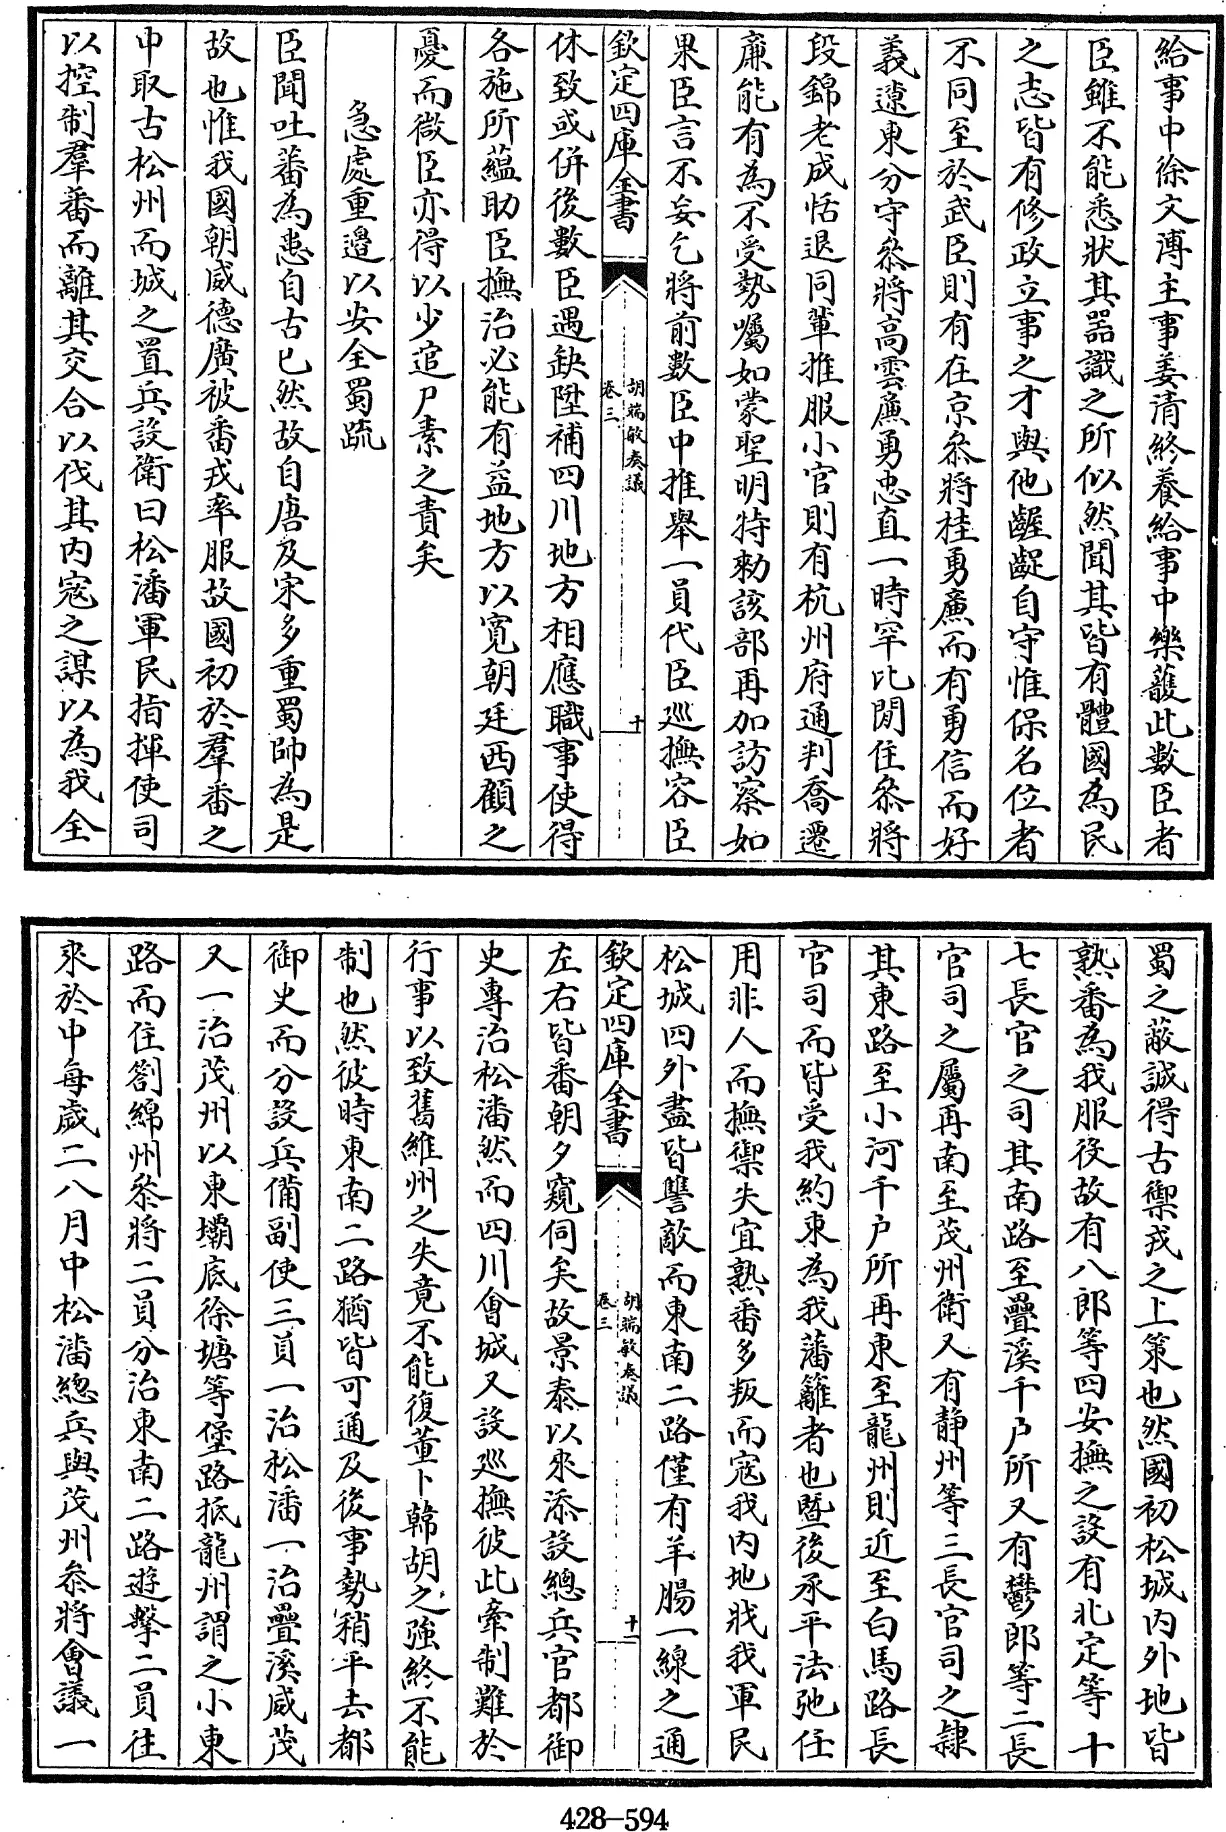 給事中徐文溥主事姜清終養給事中樂頀此數臣者
臣雖不能悉狀其器識之所似然聞其皆有體國為民
之志皆有修政立事之才與他齷齪自守惟保名位者
不同至於武臣則有在京叅將桂勇廉而有勇信而好
義遼東分守叅將高雲廉勇忠直一時罕比閒住叅將
段錦老成恬退同輩推服小官則有杭州府通判喬遷
廉能有為不受勢囑如蒙聖明特勅該部再加訪察如
果臣言不妄乞將前數臣中推舉一員代臣廵撫容臣
欽定四庫全書
胡端敏奏議
卷三
十
休致或併後數臣遇缺陞補四川地方相應職事使得
各施所藴助臣撫治必能有益地方以寛朝廷西顧之
憂而微臣亦得以少逭尸素之責矣
急處重邉以安全蜀疏
臣聞吐蕃為患自古已然故自唐及宋多重蜀帥為是
故也惟我國朝威德廣被番戎率服故國初於羣番之
中取古松州而城之置兵設衛曰松潘軍民指揮使司
以控制羣番而離其交合以伐其内寇之謀以為我全
蜀之蔽誠得古禦戎之上策也然國初松城内外地皆
熟番為我服役故有八郎等四安撫之設有北定等十
七長官之司其南路至疊溪千户所又有鬱郎等二長
官司之屬再南至茂州衛又有静州等三長官司之隸
其東路至小河千户所再東至龍州則近至白馬路長
官司而皆受我約束為我藩籬者也暨後承平法弛任
用非人而撫禦失宜熟番多叛而寇我内地戕我軍民
松城四外盡皆讐敵而東南二路僅有羊腸一線之通
欽定四庫全書
胡端敏奏議
卷三
十一
左右皆番朝夕窺伺矣故景泰以來添設總兵官都御
史專治松潘然而四川會城又設廵撫彼此牽制難於
行事以致舊維州之失竟不能復董卜韓胡之強終不能
制也然彼時東南二路猶皆可通及後事勢稍平去都
御史而分設兵備副使三員一治松潘一治疊溪威茂
又一治茂州以東壩底徐塘等堡路抵龍州謂之小東
路而住劄綿州叅將二員分治東南二路遊擊二員往
來於中每歲二八月中松潘總兵與茂州叅將會議一
428-594